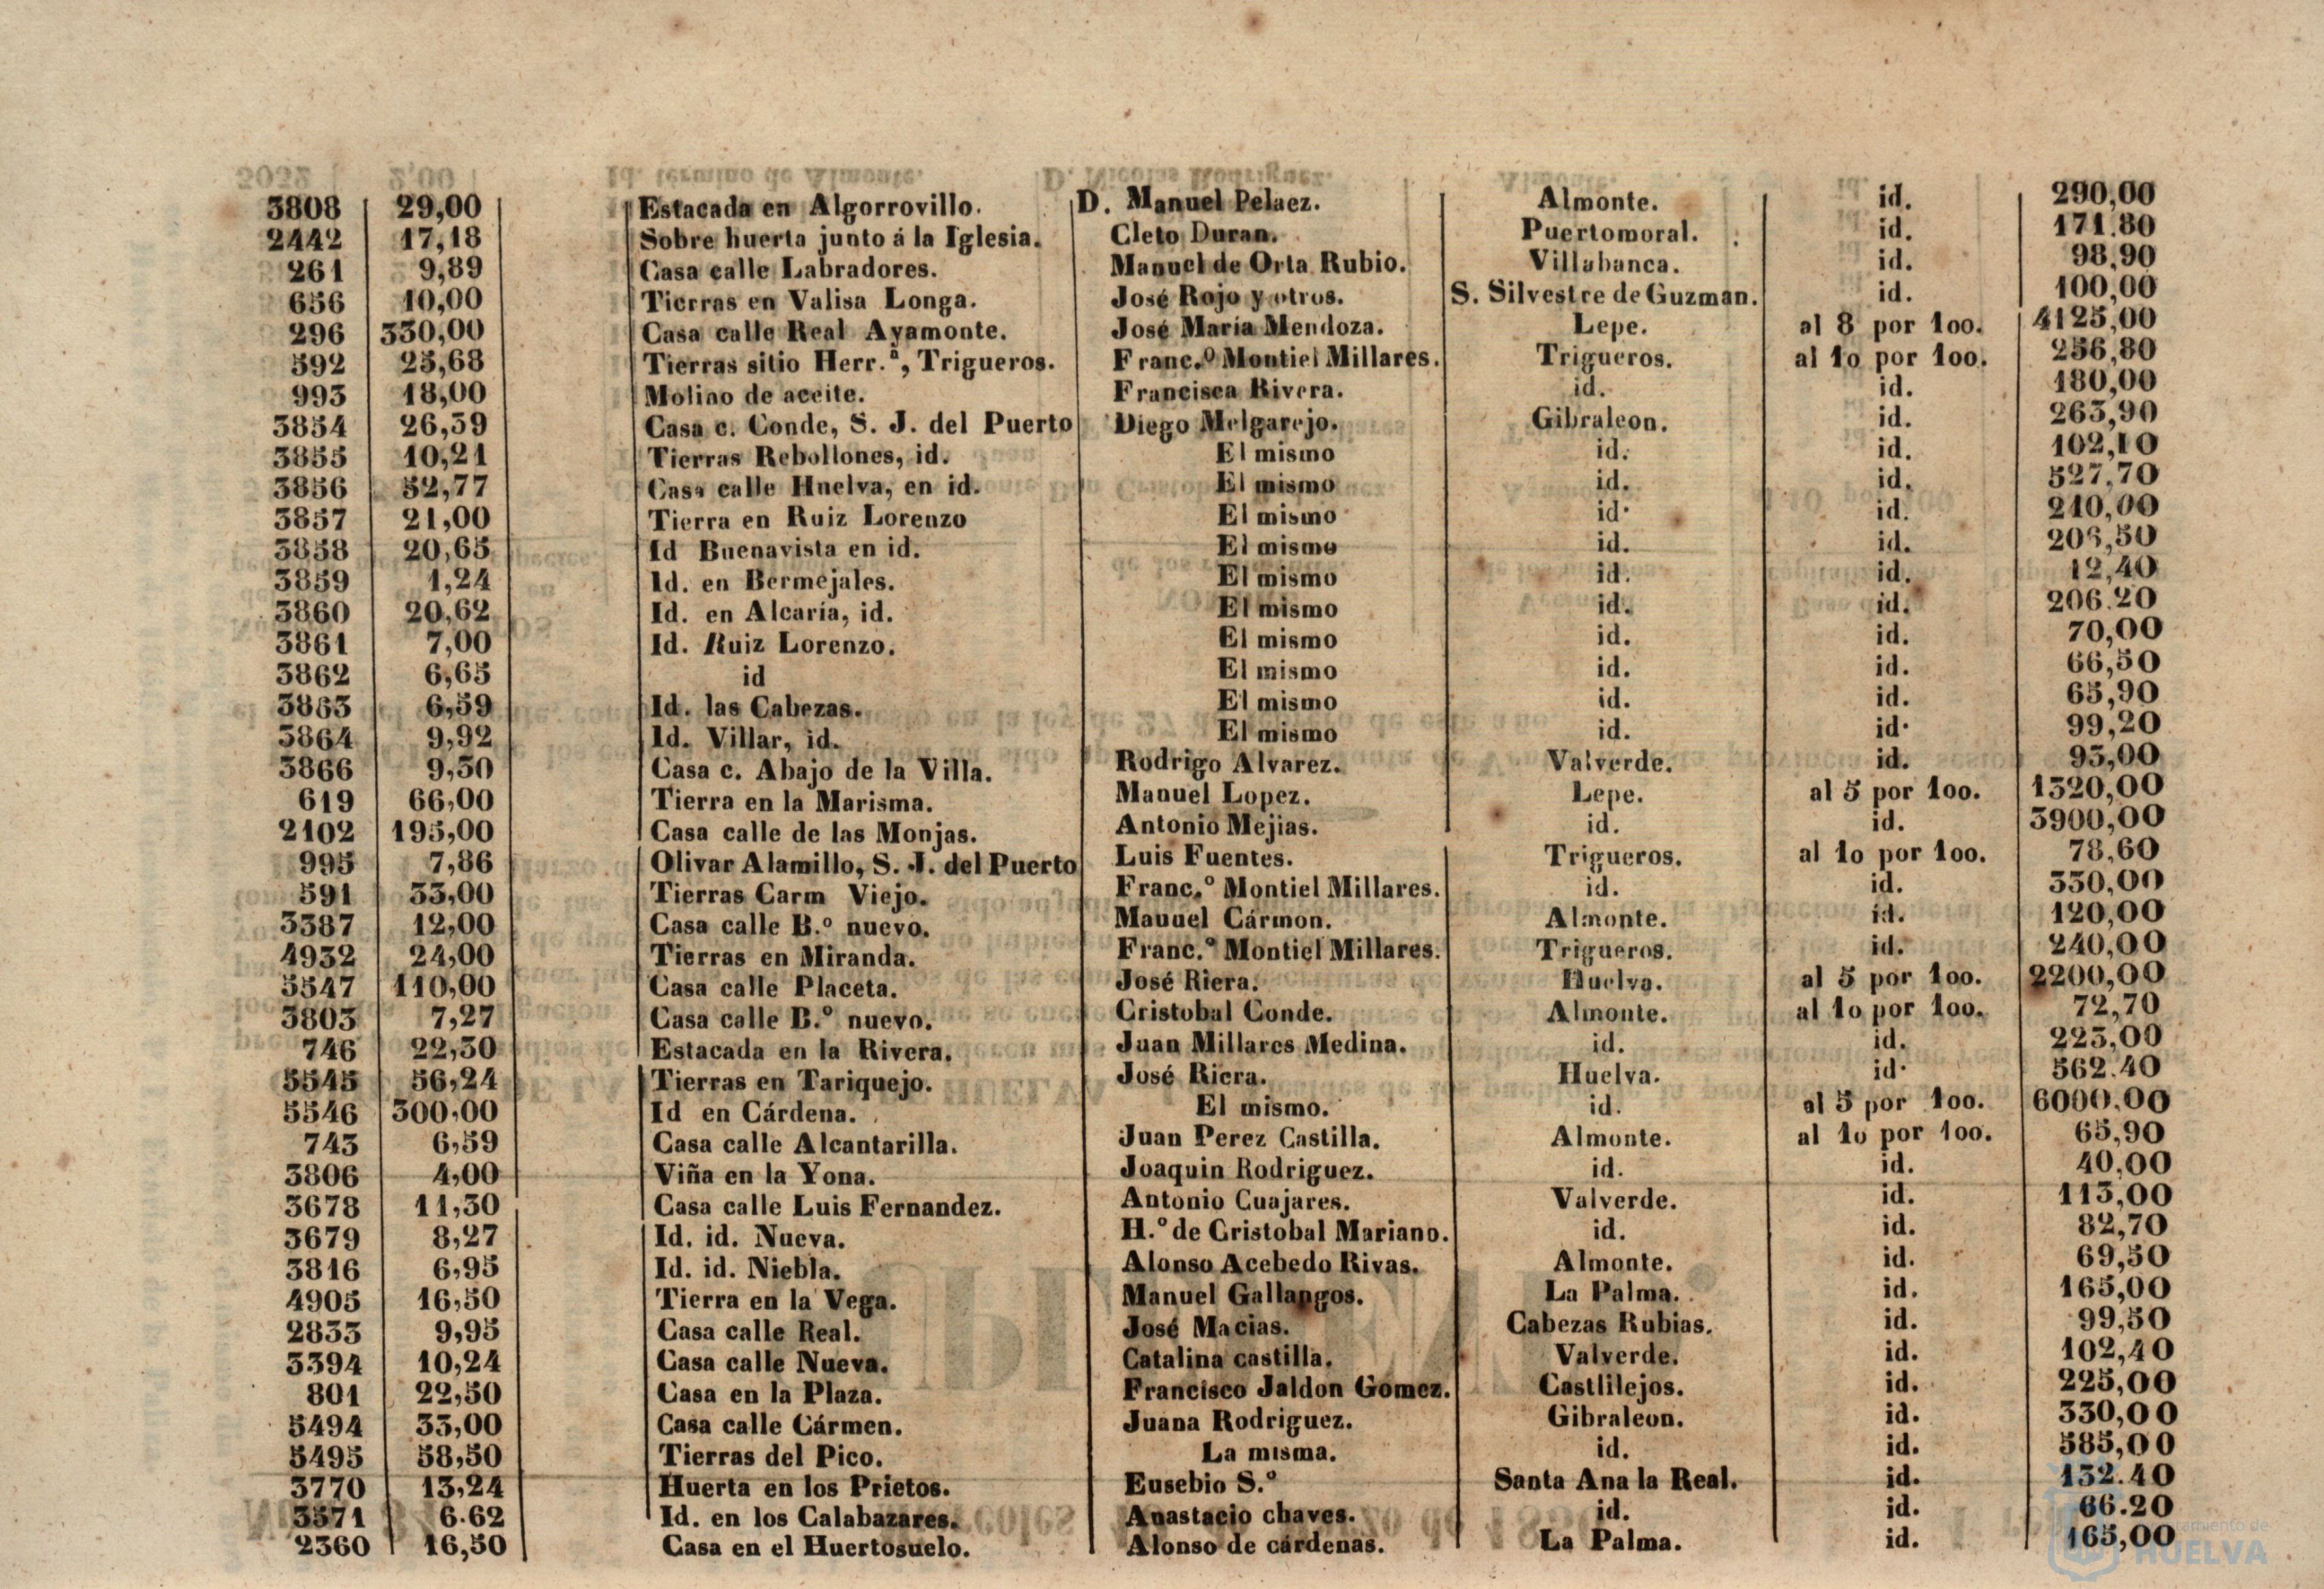 3808 29,00 Estacada en Algorrovillo. D. Manuel Pelaez. Almonte. id. 290,00
2442 17,18 Sobre huerta junto á la Iglesia. Cleto Duran. Puertomoral. id. 171.80
261 9,89 Casa calle Labradores. Manuel de Orta Rubio. Villabanca. id. 98,90
656 10,00 Tierras en Valisa Longa. José Rojo y otros. S. Silvestre de Guzman. id. 100,00
296 330,00 Casa calle Real Ayamonte. José María Mendoza. Lepe. al 8 por 100. 4125,00
592 25,68 Tierras sitio Herr.ª, Trigueros. Franc.º Montiel Millares. Trigueros. al 10 por 100. 256,80
993 18,00 Molino de aceite. Francisca Rivera. id. id. 180,00
3854 26,39 Casa c. Conde, S. J. del Puerto Diego Melgarejo. Gibraleon. id. 263,90
3855 10,21 Tierras Rebollones, id. El mismo id. id. 102,10
3856 52,77 Casa calle Huelva, en id. El mismo id. id. 527,70
3857 21,00 Tierra en Ruiz Lorenzo El mismo id. id. 210,00
3858 20,65 Id Buenavista en id. El mismo id. id. 206,50
3859 1,24 Id. en Bermejales. El mismo id. id. 12,40
3860 20,62 Id. en Alcaría, id. El mismo id. id. 206.20
3861 7,00 Id. Ruiz Lorenzo. El mismo id. id. 70,00
3862 6,65 id El mismo id. id. 66,50
3863 6,59 Id. las Cabezas. El mismo id. id. 65,90
3864 9,92 Id. Villar, id. El mismo id. id. 99,20
3866 9,30 Casa c. Abajo de la Villa. Rodrigo Alvarez. Valverde. id. 93,00
619 66,00 Tierra en la Marisma. Manuel Lopez. Lepe. al 5 por 100. 1320,00
2102 195,00 Casa calle de las Monjas. Antonio Mejias. id. id. 3900,00
995 7,86 Olivar Alamillo, S. J. del Puerto Luis Fuentes. Trigueros. al 10 por 100. 78,60
591 33,00 Tierras Carm Viejo. Franc.º Montiel Millares. id. id. 330,00
3387 12,00 Casa calle B.º nuevo. Mauuel Cármon. Almonte. id. 120,00
4932 24,00 Tierras en Miranda. Franc.º Montiel Millares. Trigueros. id. 240,00
5547 110,00 Casa calle Placeta. José Riera. Huelva. al 5 por 100. 2200,00
3803 7,27 Casa calle B.º nuevo. Cristobal Conde. Almonte. al 10 por 100. 72,70
746 22,30 Estacada en la Rivera. Juan Millares Medina. id. id. 223,00
5545 56,24 Tierras en Tariquejo. José Riera. Huelva. id. 562.40
5546 300,00 Id en Cárdena. El mismo. id. al 5 por 100. 6000,00
743 6,59 Casa calle Alcantarilla. Juan Perez Castilla. Almonte. al 10 por 100. 65,90
3806 4,00 Viña en la Yona. Joaquin Rodriguez. id. id. 40,00
3678 11,30 Casa calle Luis Fernandez. Antonio Cuajares. Valverde. id. 113,00
3679 8,27 Id. id. Nueva. H.º de Cristobal Mariano. id. id. 82,70
3816 6,95 Id. id. Niebla. Alonso Acebedo Rivas. Almonte. id. 69,50
4905 16,50 Tierra en la Vega. Manuel Gallangos. La Palma. id. 165,00
2833 9,95 Casa calle Real. José Macias. Cabezas Rubias. id. 99,50
3394 10,24 Casa calle Nueva. Catalina castilla. Valverde. id. 102,40
801 22,50 Casa en la Plaza. Francisco Jaldon Gomez. Castlilejos. id. 225,00
5494 33,00 Casa calle Cármen. Juana Rodriguez. Gibraleon. id. 330,00
5495 58,50 Tierras del Pico. La misma. id. id. 585,00
3770 13,24 Huerta en los Prietos. Eusebio S.º Santa Ana la Real. id. 132.40
3571 6.62 Id. en los Calabazares. Anastacio chaves. id. id. 66.20
2360 16,50 Casa en el Huertosuelo. Alonso de cárdenas. La Palma. id. 165,00
HUELVA